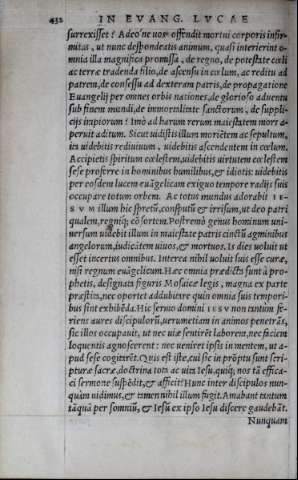 432 IN EVANG. LVCAE
surrexisset? Adeo'ne uos offendit mortui corporis infir-
mitas, ut nunc despondeatis animum, quasi interierint o-
mnia illa magnifica promissa, de regno, de potestate cœli
ac terræ tradenda filio, de ascensu in cœlum, ac reditu ad
patrem, de consessu ad dexteram patris, de propagatione
Euangelij per omnes orbis nationes, de glorioso aduentu
sub finem mundi, de immortalitate sanctorum, de suppli-
cijs impiorum? Imò ad harum rerum maiestatem mors a-
peruit aditum. Sicut uidistis illum moriẽtem ac sepultum,
ita uidebitis rediuiuum, uidebitis ascendentem in cœlum.
Accipietis spiritum cœlestem, uidebitis uirtutem cœlestem
sese proferre in hominibus humilibus, & idiotis: uidebitis
per eosdem lucem euãgelicam exiguo tempore radijs suis
occupare totum orbem. Ac totus mundus adorabit IE-
SVM illum hic spretũ, consputũ & irrisum, ut deo patri
æqualem, regniq; cõsortem. Postremò genus hominum uni-
uersum uidebit illum in maiestate patris cinctũ agminibus
angelorum, iudicãtem uiuos, & mortuos. Is dies uoluit ut
esset incertus omnibus. Interea nihil uoluit suis esse curæ,
nisi regnum euãgelicum. Hæc omnia prædicta sunt à pro-
phetis, designata figuris Mosaicæ legis, magna ex parte
præstita, nec oportet addubitare quin omnia suis tempori-
bus sint exhibẽda. Hic sermo domini IESV non tantum fe-
riens aures discipulorũ, uerumetiam in animos penetrãs,
sic illos occupauit, ut nec uiæ sentirẽt laborem, nec faciem
loquentis agnoscerent: nec ueniret ipsis in mentem, ut a-
pud sese cogitarẽt: Quis est iste, cui sic in prõptu sunt scri-
pturæ sacræ, doctrina tota ac uita Iesu, quiq; nos tã effica-
ci sermone suspẽdit, & afficit? Hunc inter discipulos nun-
quàm uidimus, & tamen nihil illum fugit. Amabant tantum
tãquã per somniũ, & Iesũ ex ipso Iesu discere gaudebãt.
Nunquam